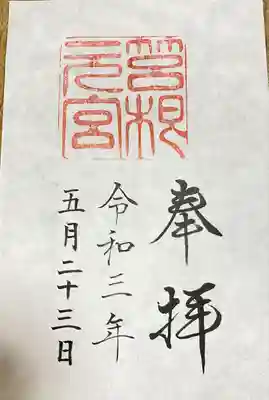 箱根
元宮
奉拝
令和三年
五月二十三日